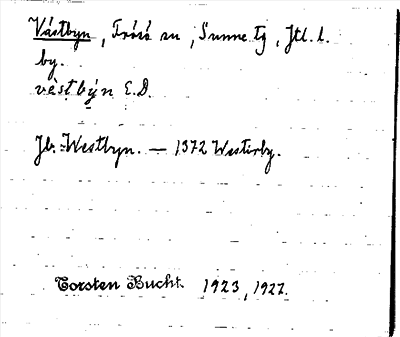 Västbyn, Frösö sn, Sunne tg, Jtl. l.
by.
vèstbýn E.D.
Jb. Westbyn. — 1372 Westerby.
Torsten Bucht. 1923, 1927.